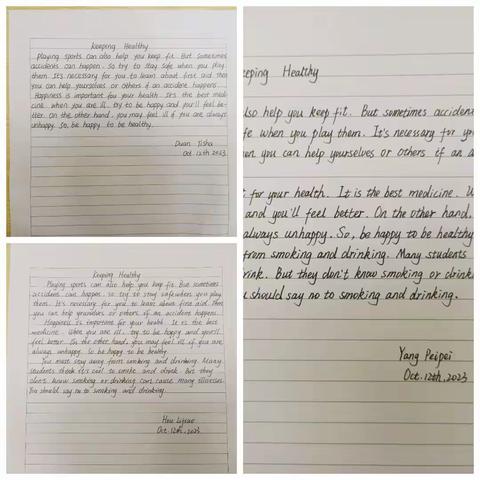 Keeping Healthy
Playing sports can also help you keep fit. But sometimes
accidents can happen. So try to stay safe when you play
them. It's necessary for you to learn about first aid. Then
you can help yourselves or others if an accident happens.
Happiness is important for your health. It's the best medi-
cine. When you are ill, try to be happy and you'll feel be-
tter. On the other hand, you may feel ill if you are always
unhappy. So, be happy to be healthy.
Duan Tisha
Oct. 12th 2023
Keeping Healthy
Playing sports can also help you keep fit. But sometimes
accidents can happen. So try to stay safe when you play
them. It's necessary for you to learn about first aid. Then
you can help yourselves or others if an accident happens.
Happiness is important for your health. It is the best
medicine. When you are ill, try to be happy and you'll
feel better. On the other hand, you may feel ill if you are
always unhappy. So be happy to be healthy.
You must stay away from smoking and drinking. Many
students think it's cool to smoke and drink. But they
don't know smoking or drinking can cause many illnesses.
You should say no to smoking and drinking.
Oct. 12th, 2023
eeping Healthy
lso help you keep fit. But sometimes acciden
fe when you play them. It's necessary for yo
en you can help yourselves or others if an a
t for your health. It is the best medicine. W
and you'll feel better. On the other hand,
always unhappy. So, be happy to be healthy
from smoking and drinking. Many students
rink. But they don't know smoking or drink
u should say no to smoking and drinking.
Yang Peipei
Oct. 12th, 2023